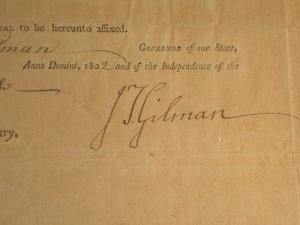 EAL to be hereunto affixed.
lman GOVERNOR of our State,
Anno Domini, 1802 and of the Independence of the
J T Gilman
ry.